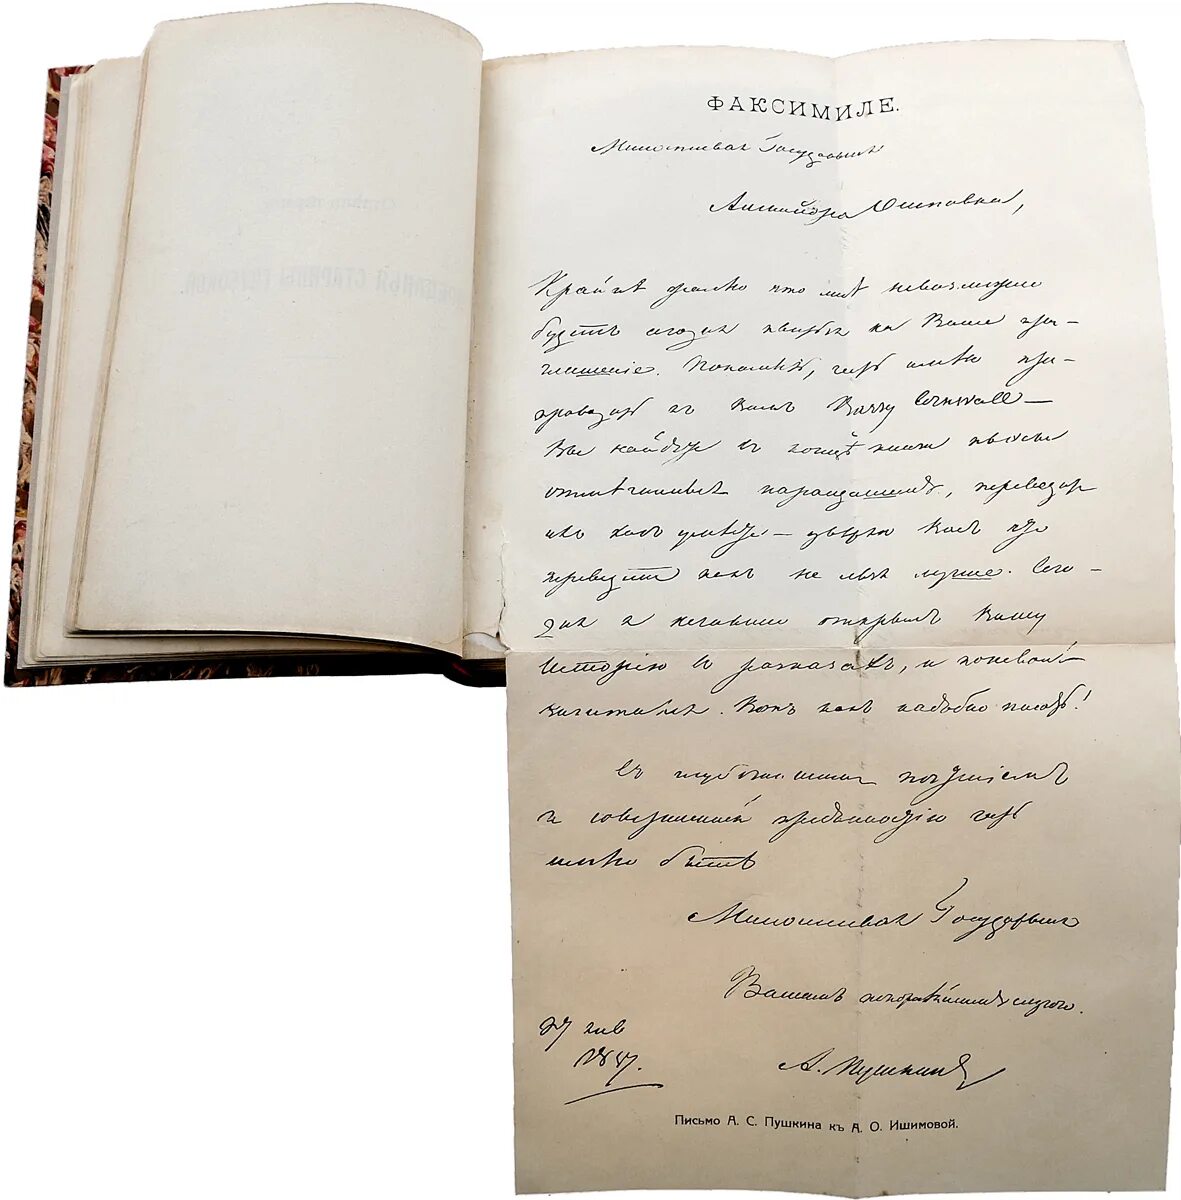 ФАКСИМИЛЕ.
Милостивая Государыня
Александра Осиповна,
Крайне жалею что мнѣ невозможно
будетъ сегодня явиться на Ваше при-
глашеніе. Покамѣстъ, честь имѣю пре-
проводить къ Вамъ Barry Cornwall —
Вы найдете въ концѣ книги пьесы
отмѣченныя карандашемъ, переведите
ихъ какъ умѣете — увѣряю Васъ что
переведете какъ не льзя лучше. Сего-
дня я нечаянно открылъ Вашу
Исторію въ разсказахъ, и поневолѣ
зачитался. Вотъ какъ надобно писать!
Съ глубочайшимъ почтеніемъ
и совершенной преданностію честь
имѣю быть
Милостивая Государыня
Вашимъ покорнѣйшимъ слугою.
27 янв
1837.
А. Пушкинъ
Письмо А. С. Пушкина къ А. О. Ишимовой.